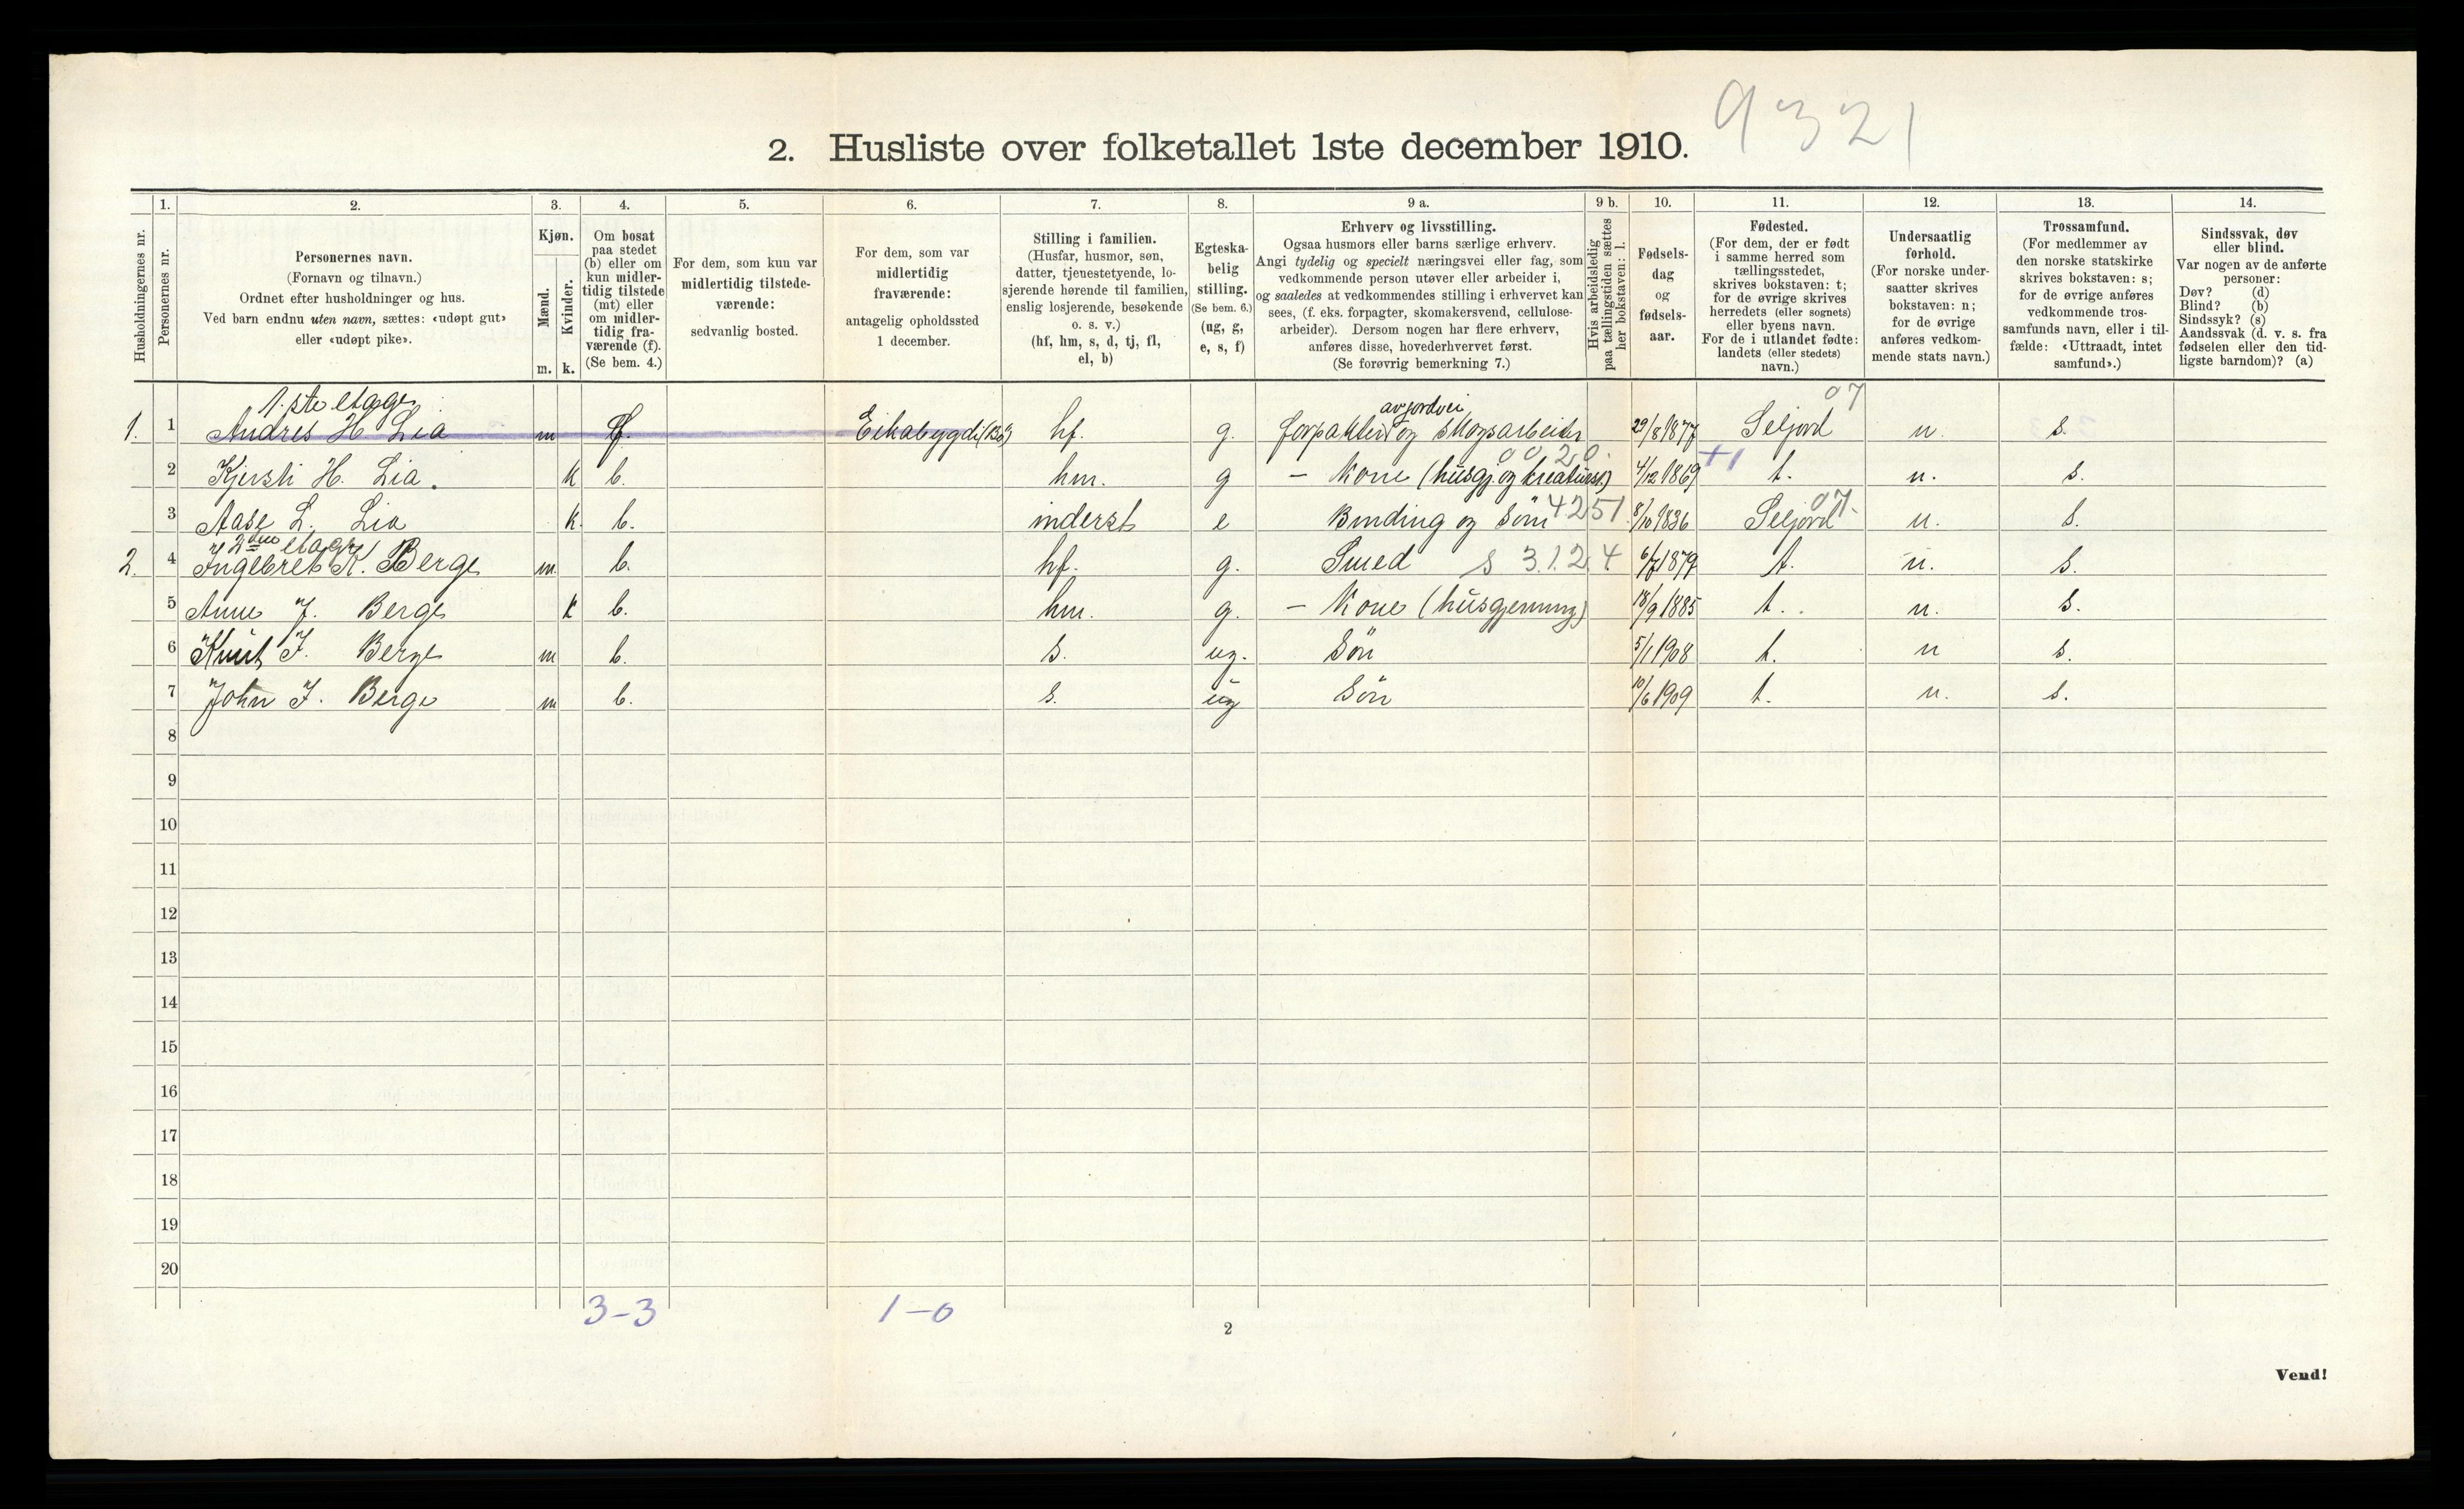 9321
2. Husliste over folketallet 1ste december 1910.
Husholdningernes nr.
1.
Personernes nr.
2.
Personernes navn.
(Fornavn og tilnavn.)
Ordnet efter husholdninger og hus.
Ved barn endnu uten navn, sættes: «udøpt gut»
eller «udøpt pike».
3.
Kjøn.
Mænd.
Kvinder.
m. k.
4.
Om bosat
paa stedet
(b) eller om
kun midler-
tidig tilstede
(mt) eller
om midler-
tidig fra-
værende (f).
(Se bem. 4.)
5.
For dem, som kun var
midlertidig tilstede-
værende:
sedvanlig bosted.
6.
For dem, som var
midlertidig
fraværende:
antagelig opholdssted
1 december.
7.
Stilling i familien.
(Husfar, husmor, søn,
datter, tjenestetyende, lo-
sjerende hørende til familien,
enslig losjerende, besøkende
o. s. v.)
(hf, hm, s, d, tj, fl,
el, b)
8.
Egteska-
belig
stilling.
(Se bem. 6.)
(ug, g,
e, s, f)
9 a.
Erhverv og livsstilling.
Ogsaa husmors eller barns særlige erhverv.
Angi tydelig og specielt næringsvei eller fag, som
vedkommende person utøver eller arbeider i,
og saaledes at vedkommendes stilling i erhvervet kan
sees, (f. eks. forpagter, skomakersvend, cellulose-
arbeider). Dersom nogen har flere erhverv,
anføres disse, hovederhvervet først.
(Se forøvrig bemerkning 7.)
9 b.
Hvis arbeidsledig
paa tællingstiden sættes
her bokstaven: l.
10.
Fødsels-
dag
og
fødsels-
aar.
11.
Fødested.
(For dem, der er født
i samme herred som
tællingsstedet,
skrives bokstaven: t;
for de øvrige skrives
herredets (eller sognets)
eller byens navn.
For de i utlandet fødte:
landets (eller stedets)
navn.)
12.
Undersaatlig
forhold.
(For norske under-
saatter skrives
bokstaven: n;
for de øvrige
anføres vedkom-
mende stats navn.)
13.
Trossamfund.
(For medlemmer av
den norske statskirke
skrives bokstaven: s;
for de øvrige anføres
vedkommende tros-
samfunds navn, eller i til-
fælde: «Uttraadt, intet
samfund».)
14.
Sindssvak, døv
eller blind.
Var nogen av de anførte
personer:
Døv? (d)
Blind? (b)
Sindssyk? (s)
Aandssvak (d. v. s. fra
fødselen eller den tid-
ligste barndom)? (a)
1.ste etage avjordvei 07
1. 1 Andres H. Lia m f. Eikabygdi (Bø) hf. g. forpakter og skogsarbeider 29/8 1877 Seljord n. s.
00 20. +1
2 Kjersti H. Lia. k b. hm. g - Kone (husgj. og kreaturst.) 4/12 1869 t. n. s.
3 Aase L. Lia k. b. inderst e Binding og Søm 4251 8/10 1836 Seljord 07. n. s.
2den etage
2. 4 Ingebret K. Berge m. b. hf. g. Smed s 3.1.2.4. 6/7 1879 t. n. s.
5 Anne J. Berge k b. hm. g. - Kone (husgjerning) 18/9 1885 t. n. s.
6 Knut I. Berge m b. s. ug. Søn 5/1 1908 t. n s.
7 John I. Berge m b. s. ug Søn 10/6 1909 t. n. s.
8
9
10
11
12
13
14
15
16
17
18
19
20
3-3 1-0
2
Vend!